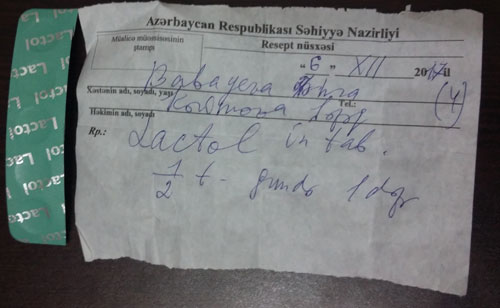 Azərbaycan Respublikası Səhiyyə Nazirliyi
Müalicə müəssisəsinin
ştampı
Resept nüsxəsi
"6" XII 2017il
Babayeva Zəhra
Xəstənin adı, soyadı, yaşı
(4)
Tel.:
Həkimin adı, soyadı
Rp.:
Lactol in tab.
1/2 t - gündə 1 dəfə
Lactol
Lactol
Lactol
Lactol
Lactol